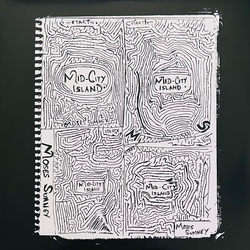 START
MID-CITY
ISLAND
MID-CITY
ISLAND
MOSES SUMNEY
MID-CITY
ISLAND
MID-CITY
ISLAND
MOSES
SUMNEY